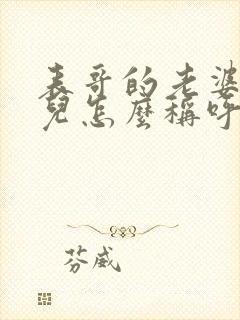 表哥的老婆
兒怎麼稱呼
芬威